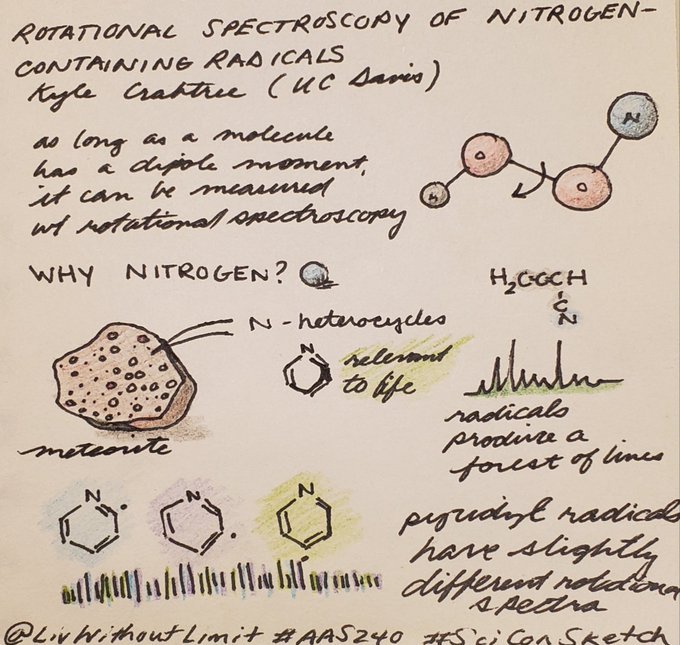 ROTATIONAL SPECTROSCOPY OF NITROGEN-
CONTAINING RADICALS
Kyle Crabtree (UC Davis)
as long as a molecule
has a dipole moment,
it can be measured
w/ rotational spectroscopy
H
O
O
N
WHY NITROGEN?
N-heterocycles
N
relevant
to life
meteorite
H₂C=C=CH
C
N
radicals
produce a
forest of lines
N
N
N
pyridyl radicals
have slightly
different rotational
spectra
@LivWithoutLimit #AAS240 #SciConSketch